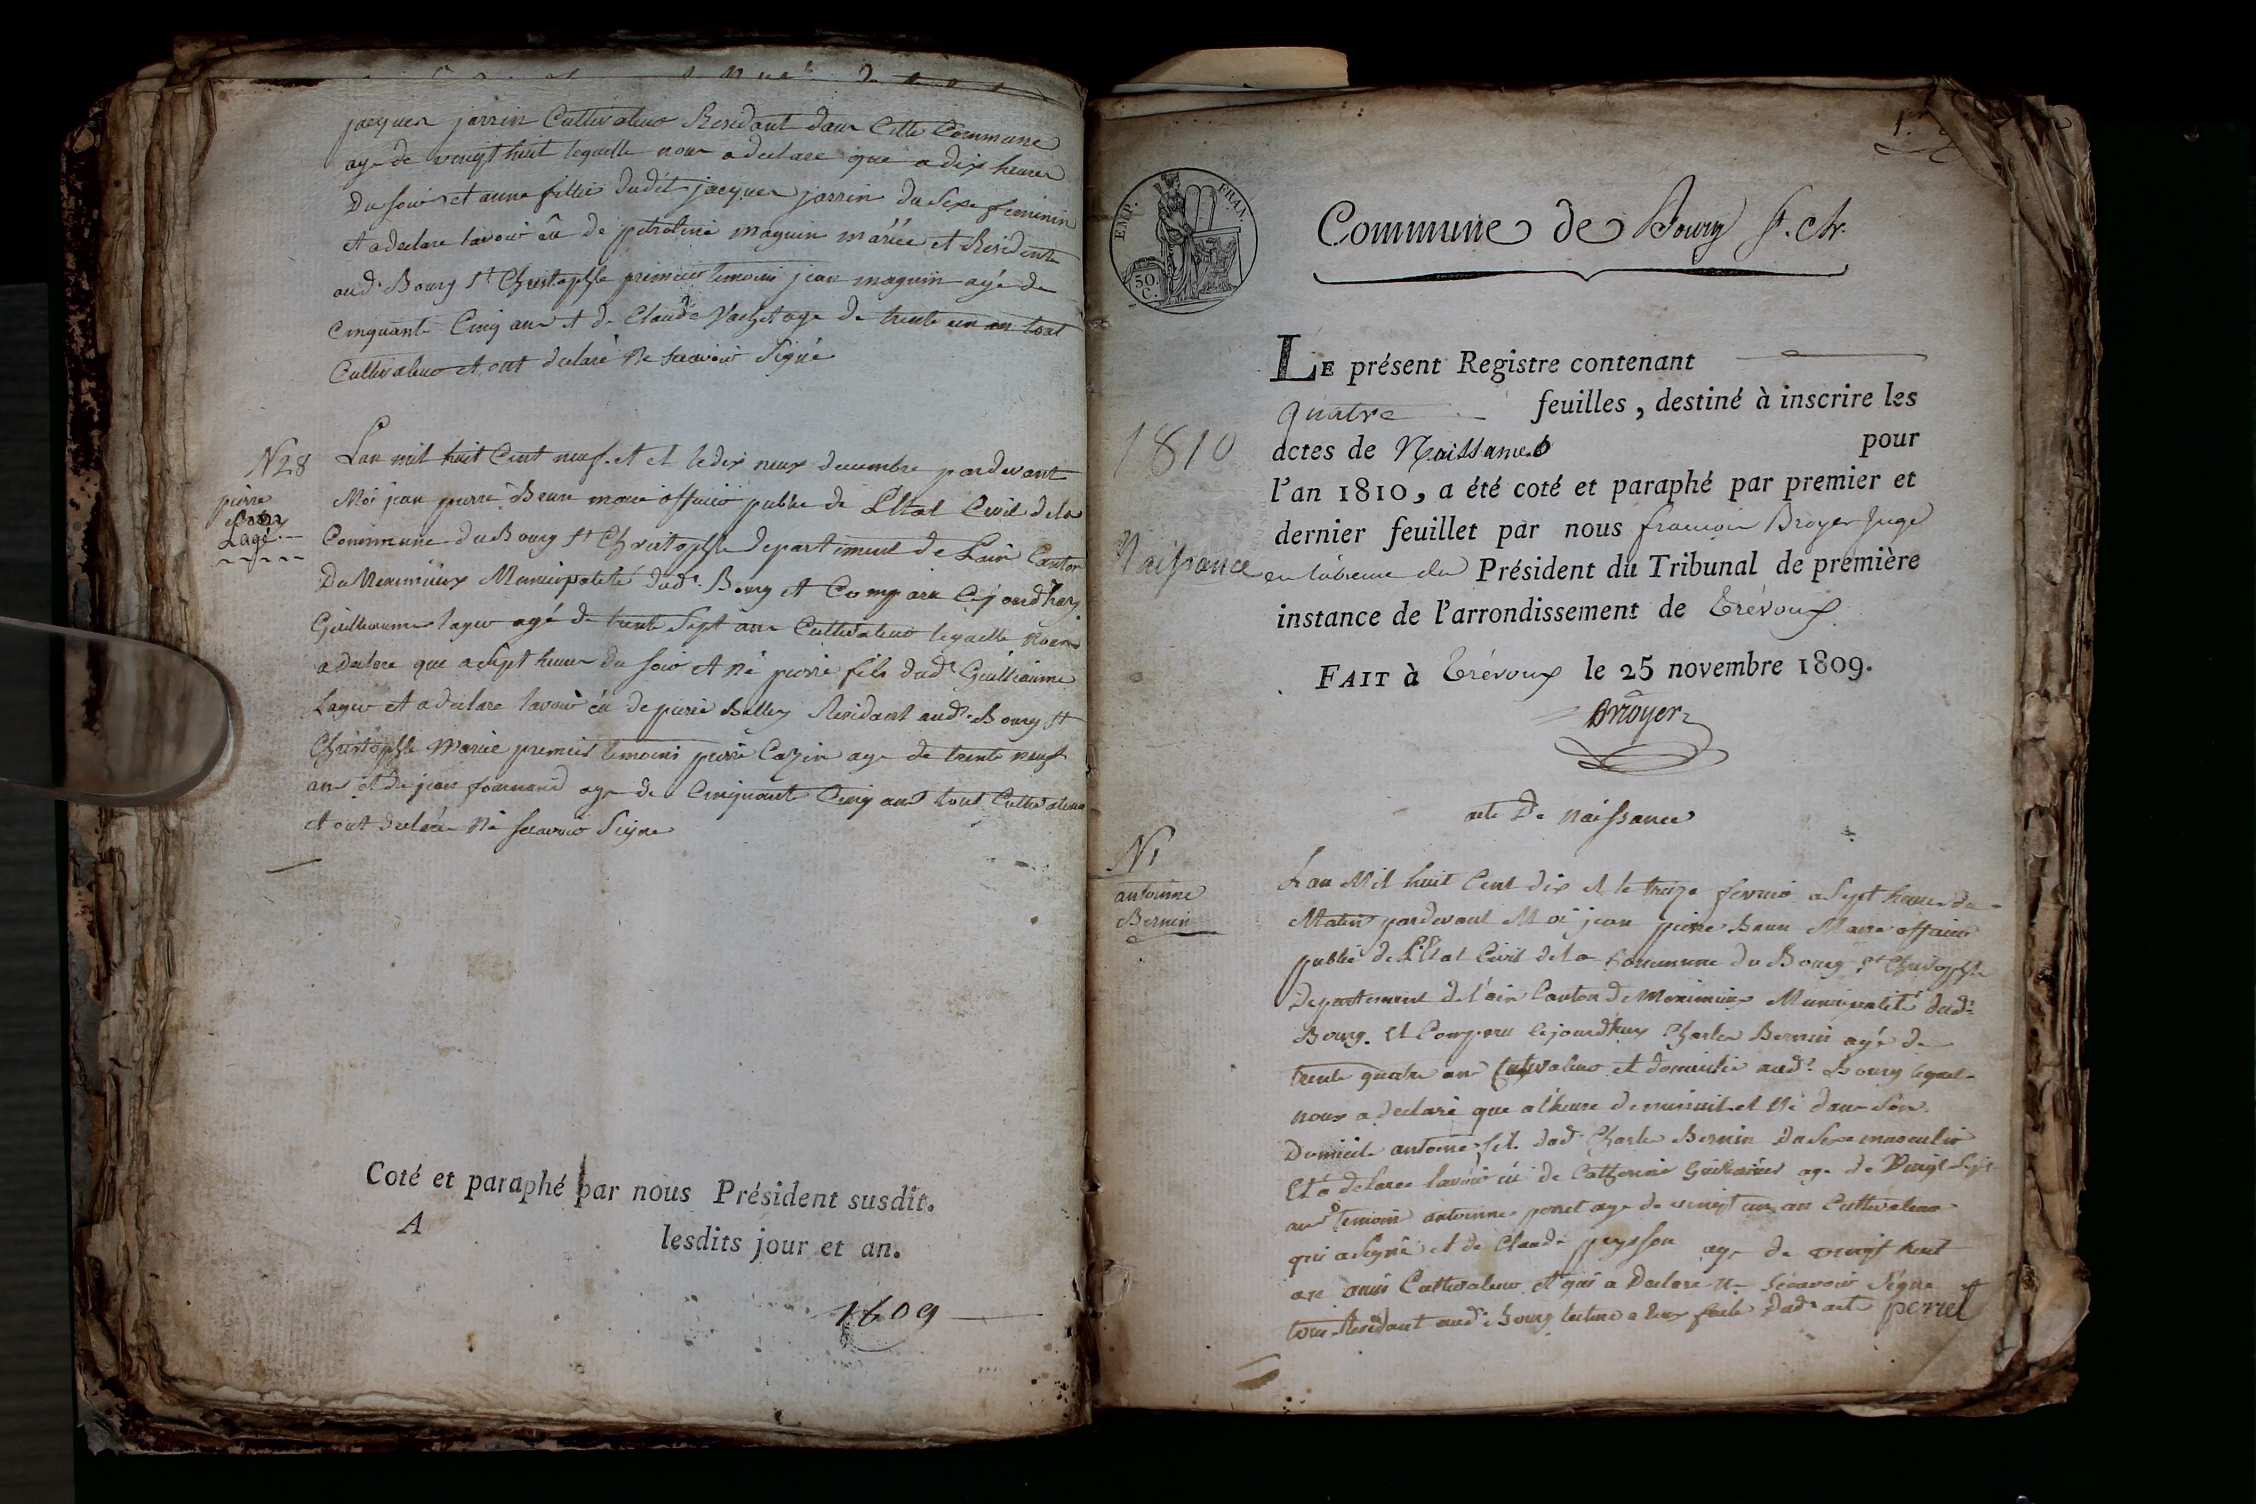 jacques jarrin Cultivateur Residant dans Cette Commune
age de vingt huit lequelle nous a declare que a dix heures
Du soir et anne fillie dudit jacques jarrin du sexe feminin
et a declare lavoir eu de petroline maguin mariée et Residente
aud. Bourg St Christophle premier temoins jean maguin agé de
Cinquante Cinq ans et de Claude Vachet age de trente un an tout
Cultivateur et ont declaré ne scavoir Signé
N 28
pierre
Lagé
Lan mil huit Cent neuf et et le dix neuf decembre pardevant
Moi jean pierre Brun maire officié public de L'Etat Civil de la
Commune du Bourg St Christophle departement de Lain Canton
De Meximieux Municipalité dud. Bourg et Comparu Cejourdhuy
Guilleaume lager agé de trente Sept ans Cultivateur lequelle nous
a declare que a Sept heures du soir et né pierre fils dud. Guilliaume
Lager et a declare lavoir eu de Belley Residant aud. Bourg St
Christophle Mariée premier temoins pierre Cazin age de trente neuf
ans et de jean age de Cinquante Cinq ans tout Cultivateur
et ont declaré Ne scavoir Signe
Coté et paraphé par nous Président susdit.
A
lesdits jour et an.
1809
EMP. FRAN.
50 C.
Commune de Bourg St. Chr.
1810
Naissance
LE présent Registre contenant
quatre feuilles, destiné à inscrire les
actes de Naissances pour
l'an 1810, a été coté et paraphé par premier et
dernier feuillet par nous francois Broyer Juge
en labsence du Président du Tribunal de première
instance de l'arrondissement de Trévoux
FAIT à Trévoux le 25 novembre 1809.
Broyer
acte De naissance
N 1
antoinne
Bernin
Lan Mil huit Cent dix et le treize fevrié a Sept heures du
Matin pardevant Moi jean pierre Brun Maire officié
public de L'Etat Civil de la Commune du Bourg St Christophle
Departement de l'ain Canton de Meximieux Municipalité dud.
Bourg. et Comparu Cejourdhuy Charles Bernin agé de
trente quatre ans Cultivateur et domicilié aud. Bourg lequel
nous a declaré que a l'heure de minuit et né dans Son
Domicile antoine fils dud Charles Bernin Du Sexe masculin
Et a declaree lavoir eu de Catherine age de Vingt Sept
ans temoins antoinne perret age de vingt un an Cultivateur
qui a Signé et de Claude peysson age de vingt huit
an aussi Cultivateur et qui a Declare ne scavoir Signe et
tous Residant aud. Bourg lecture a eux faite Dud. acte perret